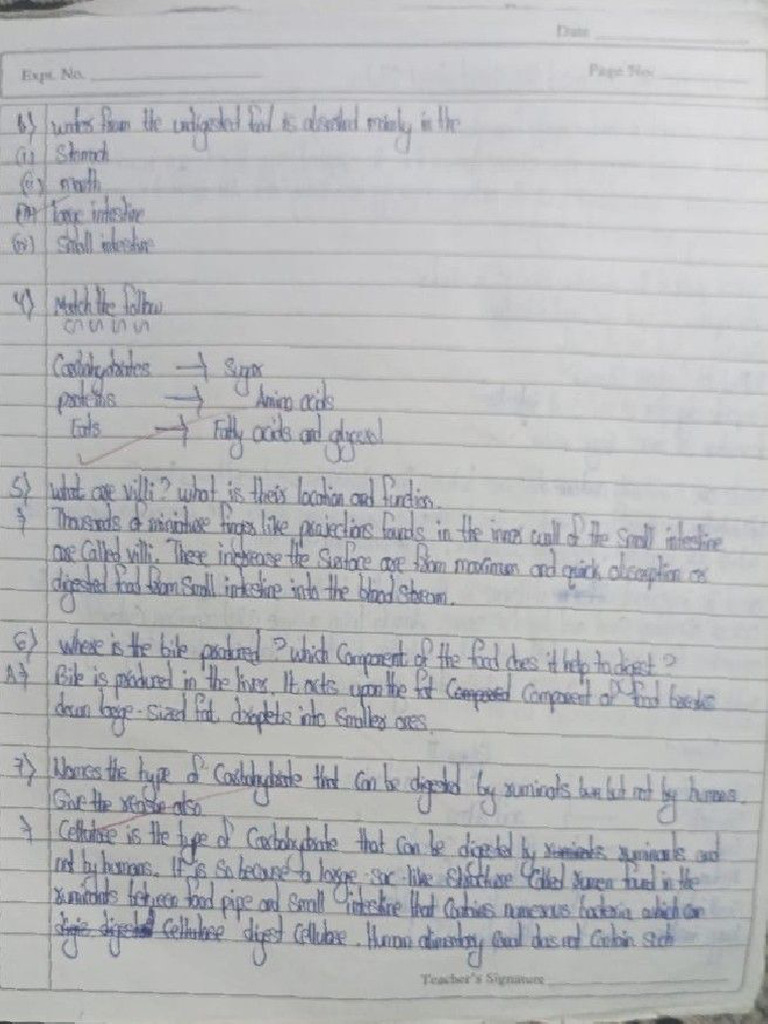 Date
Expt. No.
Page No.
b) water from the undigested food is absorbed mainly in the
(i) Stomach
(ii) mouth
(iii) large intestine
(iv) Small intestine
4) Match the follow
Carbohydrates → Sugar
proteins → Amino acids
Fats → Fatty acids and glycerol
5) what are villi? what is their location and function.
Thousands of miniature finger like projections founds in the inner wall of the small intestine
are Called villi. These increase the Surface are from maximum and quick absorption or
digested food from Small intestine into the blood stream.
6) where is the bile produced? which Component of the food does it help to digest?
A Bile is produced in the liver. It acts upon the fat Component of food breaks
down large-sized fat droplets into smaller ones.
7) Names the type of Carbohydrate that can be digested by ruminats but not by humans.
Give the reason also
Cellulose is the type of Carbohydrate that can be digested by ruminants and
not by humans. It is so because a large sac-like structure Called rumen found in the
ruminants between food pipe and Small intestine that Contains numerous bacteria which can
digested Cellulose digest Cellulose. Human alimentary canal does not Contain such
Teacher's Signature